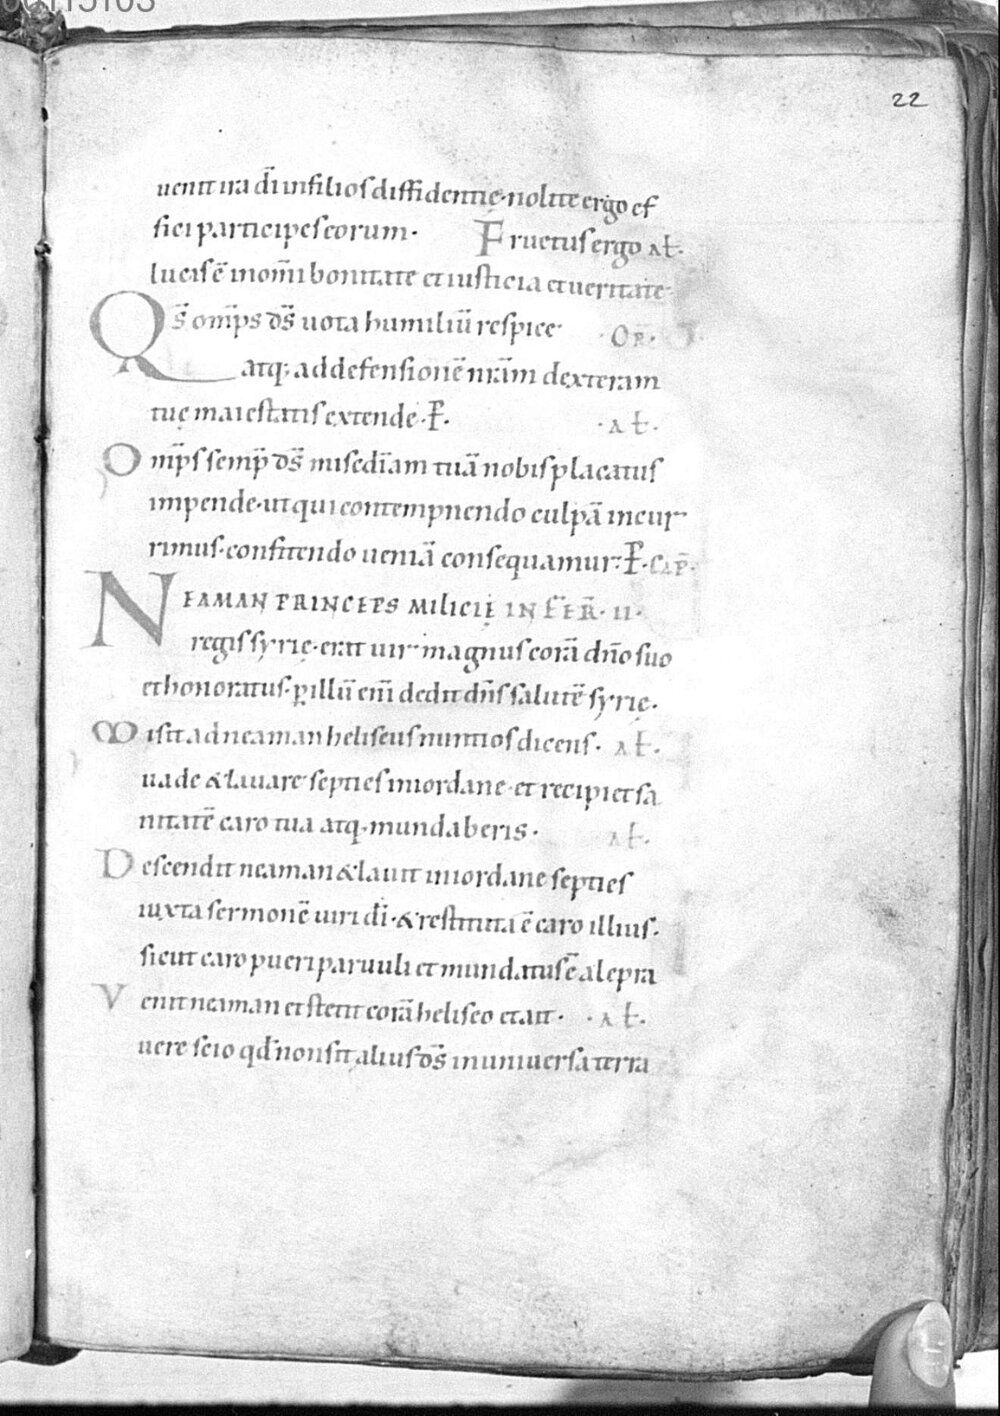 22
uenit ira dī in filios diffidentię· nolite ergo ef
fici participes eorum· Fructus ergo AŁ·
lucis ē in om̄i bonitate et iusticia et ueritate·
Qs̄ om̄ps ds̄ uota humiliū respice· ·OR̄·
atq; ad defensionē nr̄am dexteram
tuę maiestatis extende·P̄· ·AŁ·
Om̄ps semp̄ ds̄ misedīam tuā nobis placatus
impende· ut qui contempnendo culpā incur
rimus· confitendo ueniā consequamur·P̄· CAP̄·
NEAMAN PRINCEPS MILICIĘ IN FER̄· II·
regis syrię· erat uir magnus corā dn̄o suo
et honoratus· p̱ illū eni̅ dedit dn̄s salutē syrię·
Misit ad neaman heliseus nuntios dicens· AŁ·
uade & lauare septies in iordane· et recipiet sa
nitatē caro tua atq· mundaberis· AŁ·
Descendit neaman & lauit in iordane septies
iuxta sermonē uiri dī· & restituta ē caro illius·
sicut caro pueri paruuli et mundatus ē a lepra
Venit neaman et stetit corā heliseo et ait· ·AŁ·
uere scio qd̄ non sit alius ds̄ in uniuersa terra